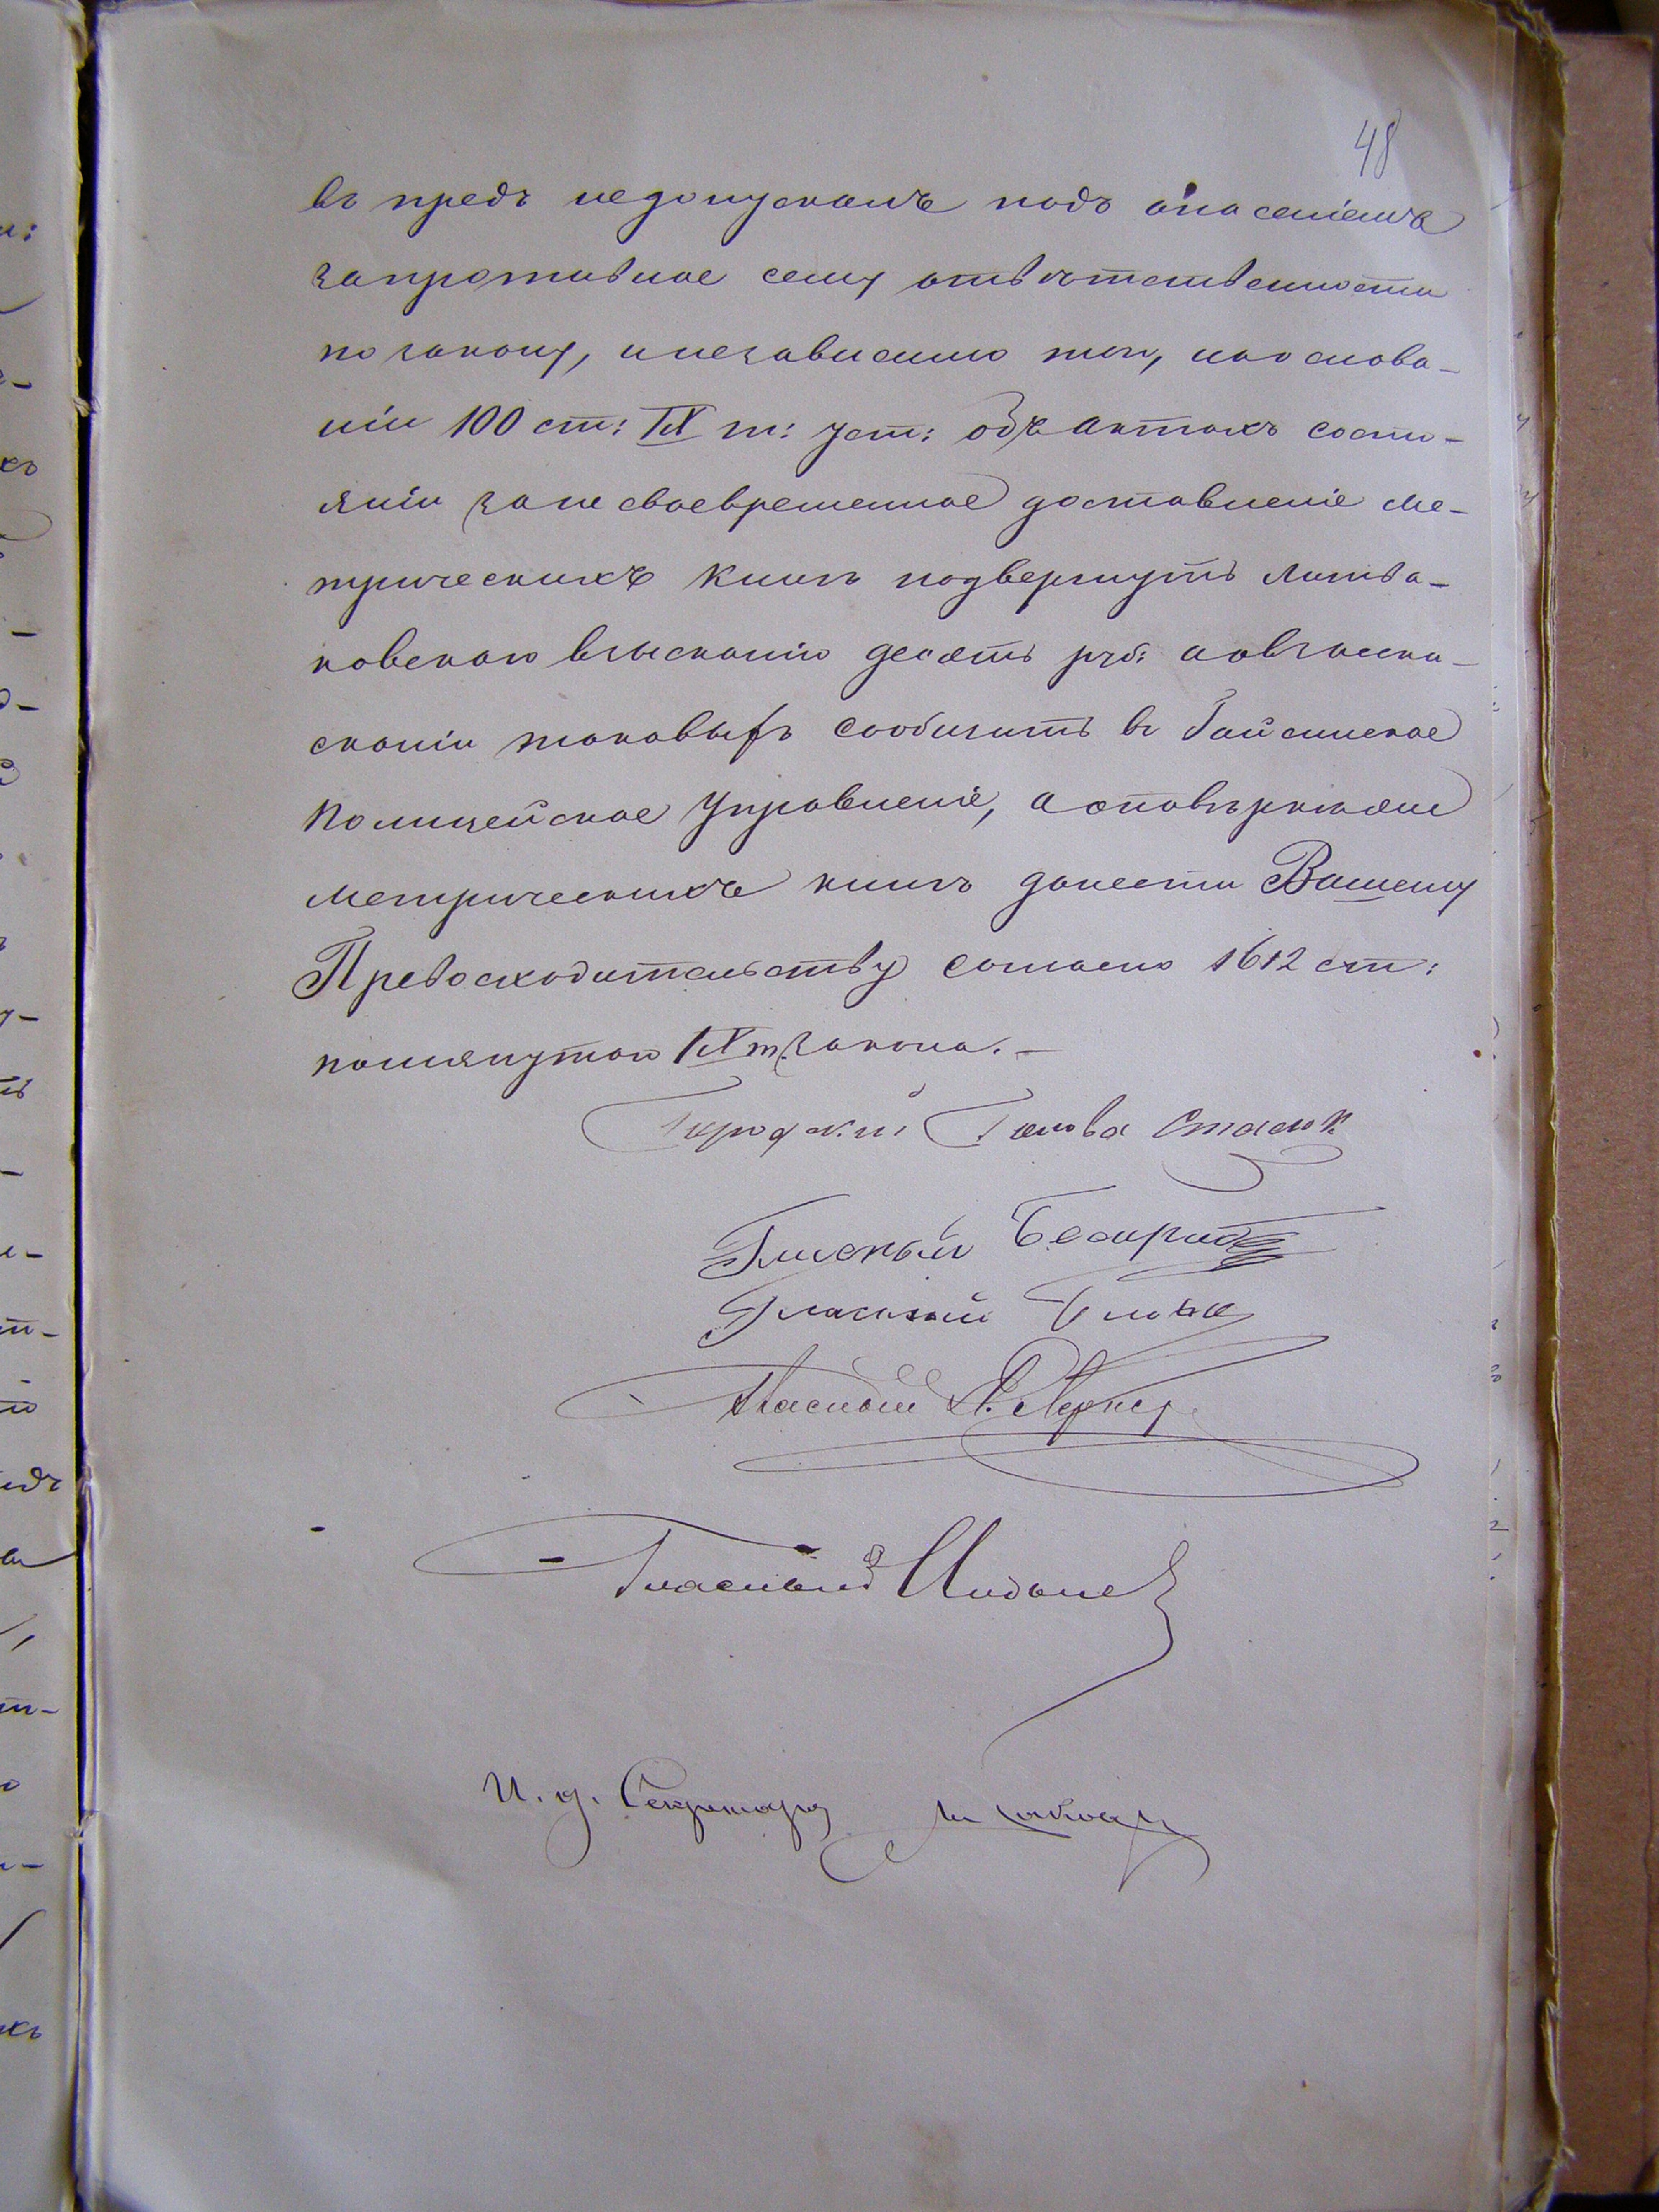 48
въ предъ недопускалъ подъ опасеніемъ
запротивное сему отвѣтственности
по закону, инезависимо того, наоснова-
ніи 100 ст: IX т: уст: объ актахъ состо-
яніи зане своевременное доставленіе ме-
трическихъ книгъ подвергнуть Литва-
ковскаго взысканію десять руб: аовзыска-
сканіи таковыхъ сообщить въ Гайсинское
Полицейское Управленіе, а о повѣркѣ
метрическихъ книгъ донести Вашему
Превосходительству согласно 1612 ст:
помянутаго IX т. закона.-
Городской Голова Стасюк
Гласный
Гласный
Гласный
Гласный
И. д. Секретаря